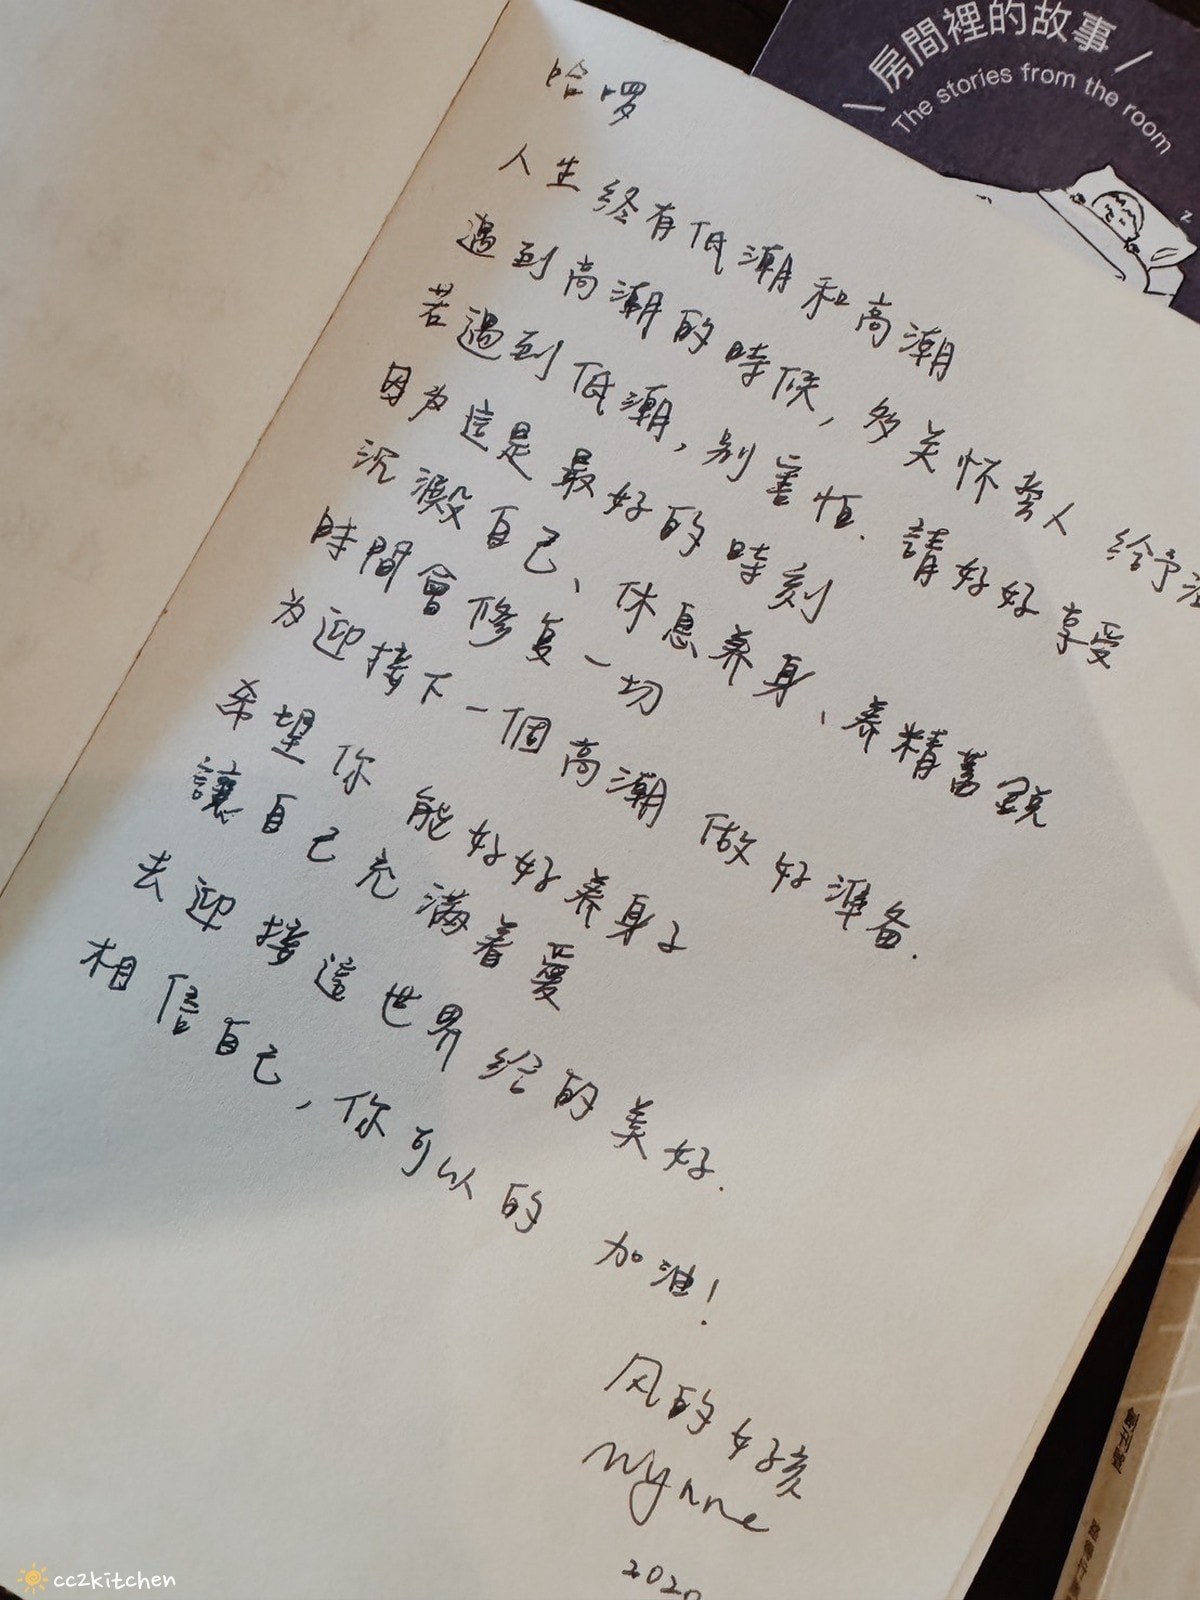 \ 房間裡的故事 /
The stories from the room
z
哈囉
人生終有低潮和高潮
遇到高潮的時候，多关怀旁人 給予
若遇到低潮，别害怕. 請好好享受
因為這是最好的時刻
沉澱自己、休息养身、养精蓄銳
時間會修复一切
为迎接下一個高潮 做好準备.
希望你 能好好养身子
讓自己充滿着愛
去迎接這世界給的美好.
相信自己，你可以的 加油！
风的女孩
Wynne
2020
cc2kitchen